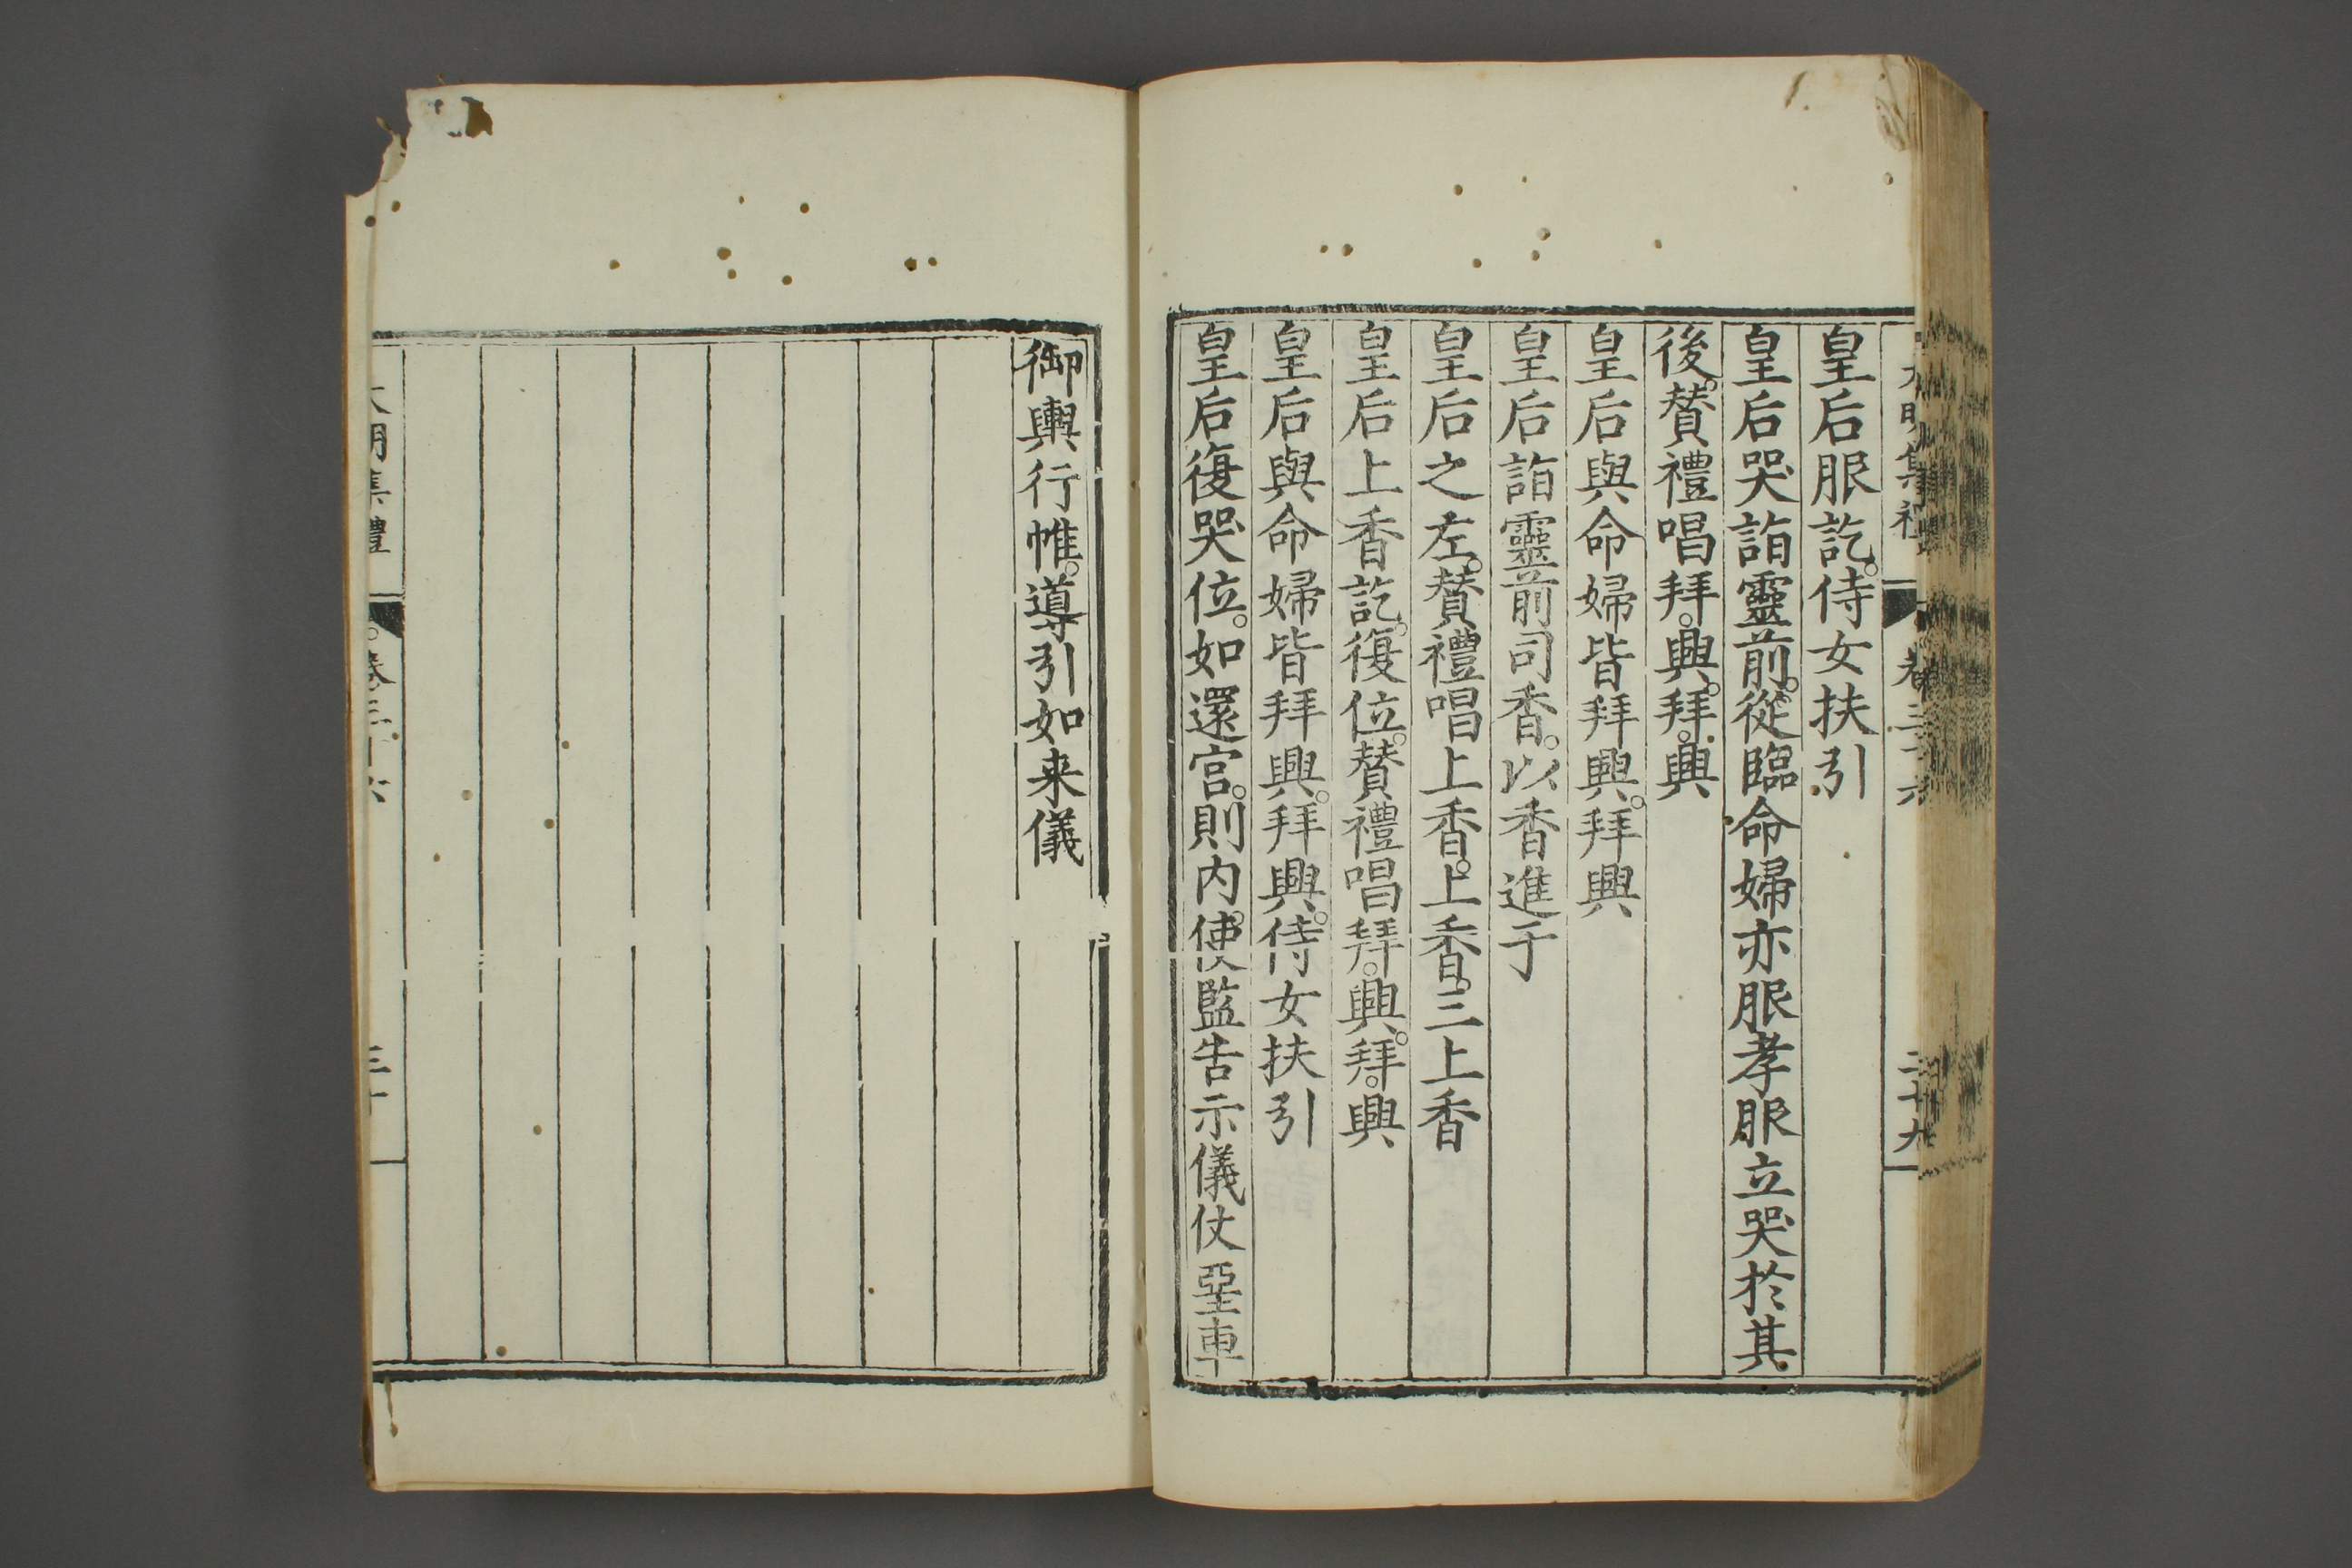 大明集禮 卷三十六 二十九
皇后服訖。侍女扶引
皇后哭詣靈前。從臨命婦亦服孝服立哭於其
後。贊禮唱拜。興。拜。興
皇后與命婦皆拜興。拜興
皇后詣靈前司香。以香進于
皇后之左。贊禮唱上香。上香。三上香
皇后上香訖。復位。贊禮唱拜。興。拜。興
皇后與命婦皆拜興。拜興。侍女扶引
皇后復哭位。如還宮。則内。使監告示儀仗堊車
御輿行帷。導引如来儀
大明集禮 卷三十六 三十